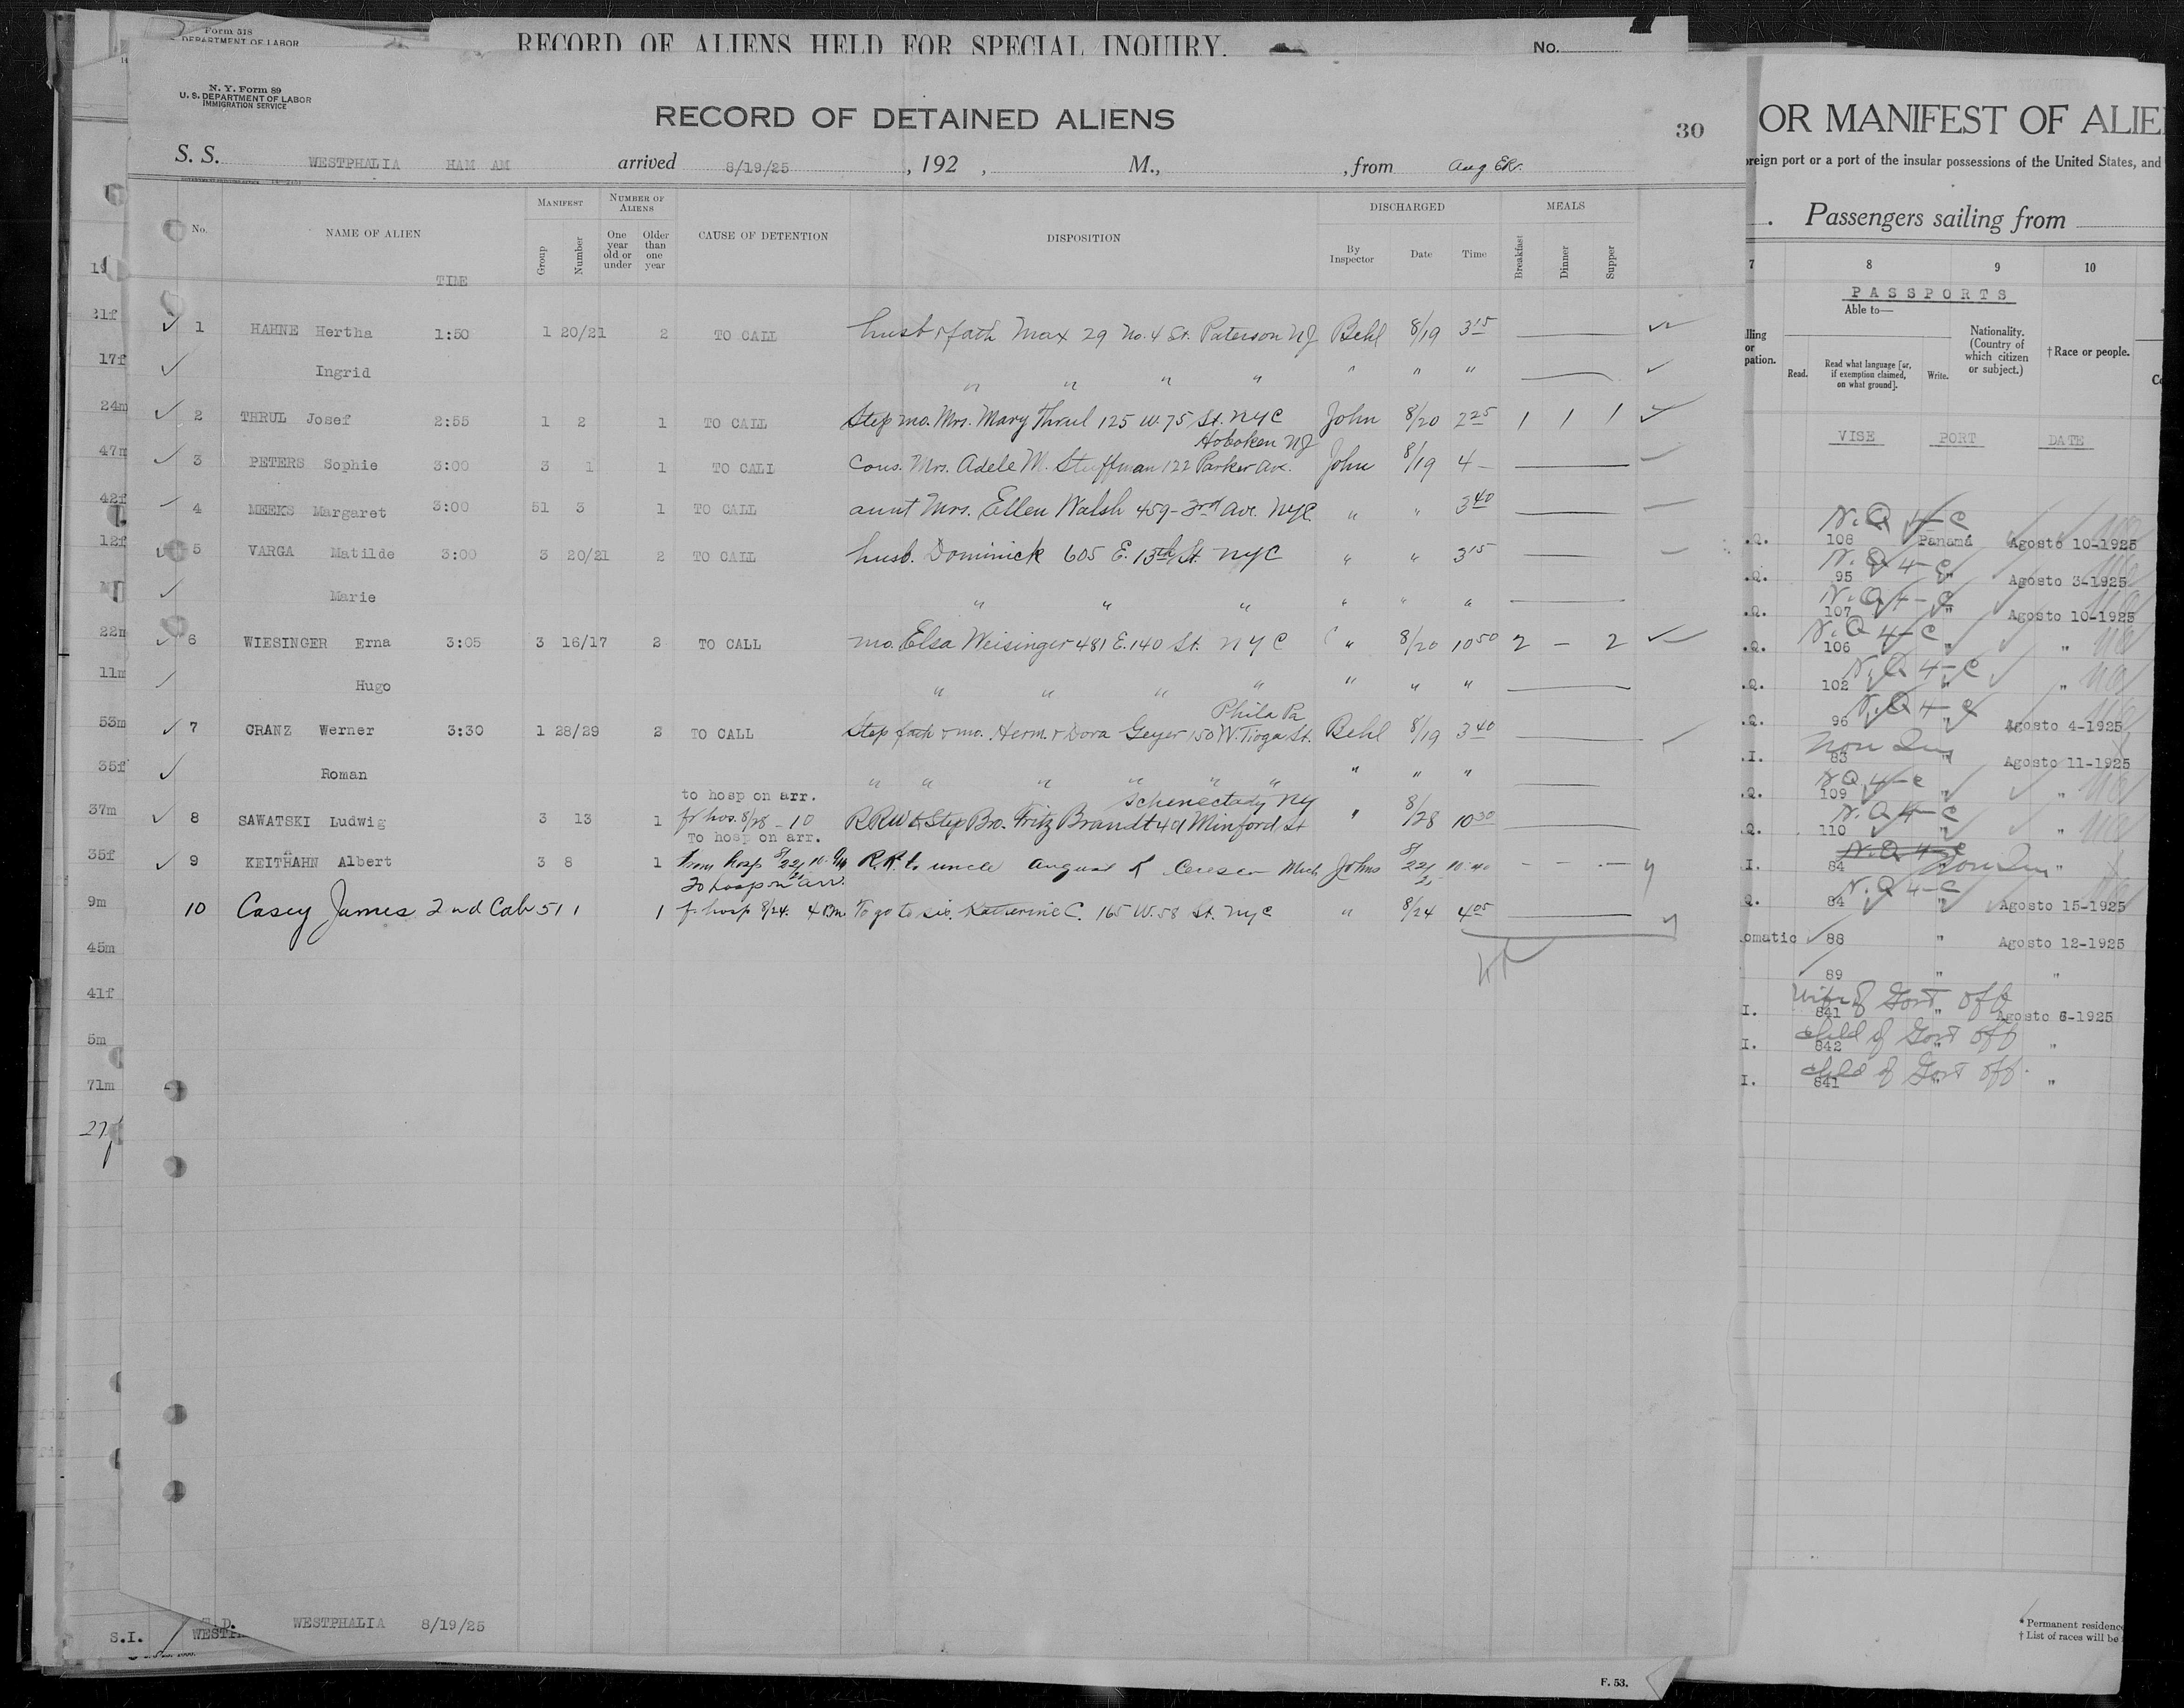 Form 518
DEPARTMENT OF LABOR
RECORD OF ALIENS HELD FOR SPECIAL INQUIRY.
No.
N. Y. Form 89
U. S. DEPARTMENT OF LABOR
IMMIGRATION SERVICE
RECORD OF DETAINED ALIENS
30
S. S. WESTPHALIA HAM AM arrived 8/19/25, 192 , M., , from
No. NAME OF ALIEN TIME MANIFEST Group Number NUMBER OF ALIENS One year old or under Older than one year CAUSE OF DETENTION DISPOSITION DISCHARGED By Inspector Date Time MEALS Breakfast Dinner Supper
1 HAHNE Hertha 1:50 1 20/21 2 TO CALL husb & fath Max 29 No. 4 St. Paterson NJ Behl 8/19 3 15
Ingrid " " " " " " "
2 THRUL Josef 2:55 1 2 1 TO CALL Step mo. Mrs. Mary Thrul 125 W. 75 St. NYC John 8/20 2 25 1 1 1
Hoboken NJ
3 PETERS Sophie 3:00 3 1 1 TO CALL Cous. Mrs. Adele M. Stuffman 122 Parker Ave. John 8/19 4 -
4 MEEKS Margaret 3:00 51 3 1 TO CALL aunt Mrs. Ellen Walsh 459 - 3rd Ave. NYC. " " 3 40
5 VARGA Matilde 3:00 3 20/21 2 TO CALL husb. Dominick 605 E. 13th St. NYC " " 3 15
Marie " " " " " "
6 WIESINGER Erna 3:05 3 16/17 2 TO CALL mo. Elsa Weisinger 481 E. 140 St. NYC " 8/20 10 50 2 - 2
Hugo " " " " " " "
Phila Pa
7 CRANZ Werner 3:30 1 28/29 2 TO CALL Step fath & mo. Herm. & Dora Geyer 150 W. Tioga St. Behl 8/19 3 40
Roman " " " " " " " " "
to hosp on arr. Schenectady NY
8 SAWATSKI Ludwig 3 13 1 fr hos. 8/28 - 10 Step Bro. Fritz Brandt 401 Minford St " 8/28 10 30
To hosp on arr.
9 KEITHAHN Albert 3 8 1 from hosp R.R. to uncle August K Ceresco Mich Johns 10 40
To hosp on arr.
10 Casey James 2nd Cab 51 1 1 fr hosp 8/24. 4 Pm To go to sis. Katherine C. 165 W. 58 St. NYC " 8/24 4 05
31f
17f
24m
47m
42f
12f
22m
11m
53m
35f
37m
35f
9m
45m
41f
5m
71m
S.I.
WESTPHALIA 8/19/25
F. 53.
OR MANIFEST OF ALIE
reign port or a port of the insular possessions of the United States, and
Passengers sailing from
7 8 9 10
PASSPORTS
Able to—
Read. Read what language [or, if exemption claimed, on what ground]. Write. Nationality. (Country of which citizen or subject.) † Race or people.
VISE PORT DATE
N.Q 4-C
.Q. 108 Panamá Agosto 10-1925
N.Q 4-C
.Q. 95 " Agosto 3-1925
N.Q 4-C
.Q. 107 " Agosto 10-1925
N.Q 4-C
.Q. 106 " "
N.Q 4-C
.Q. 102 "
N.Q 4-C
.Q. 96 " Agosto 4-1925
.I. 83 " Agosto 11-1925
N.Q 4-C
.Q. 109 " "
N.Q 4-C
.Q. 110 " "
N.Q 4-C
.I. 84 "
N.Q 4-C
.Q. 84 " Agosto 15-1925
omatic 88 " Agosto 12-1925
89 " "
Wife of Govt off
I. 841 " Agosto 6-1925
child of Govt off
I. 842 " "
child of Govt off.
I. 841 " "
* Permanent residence
† List of races will be